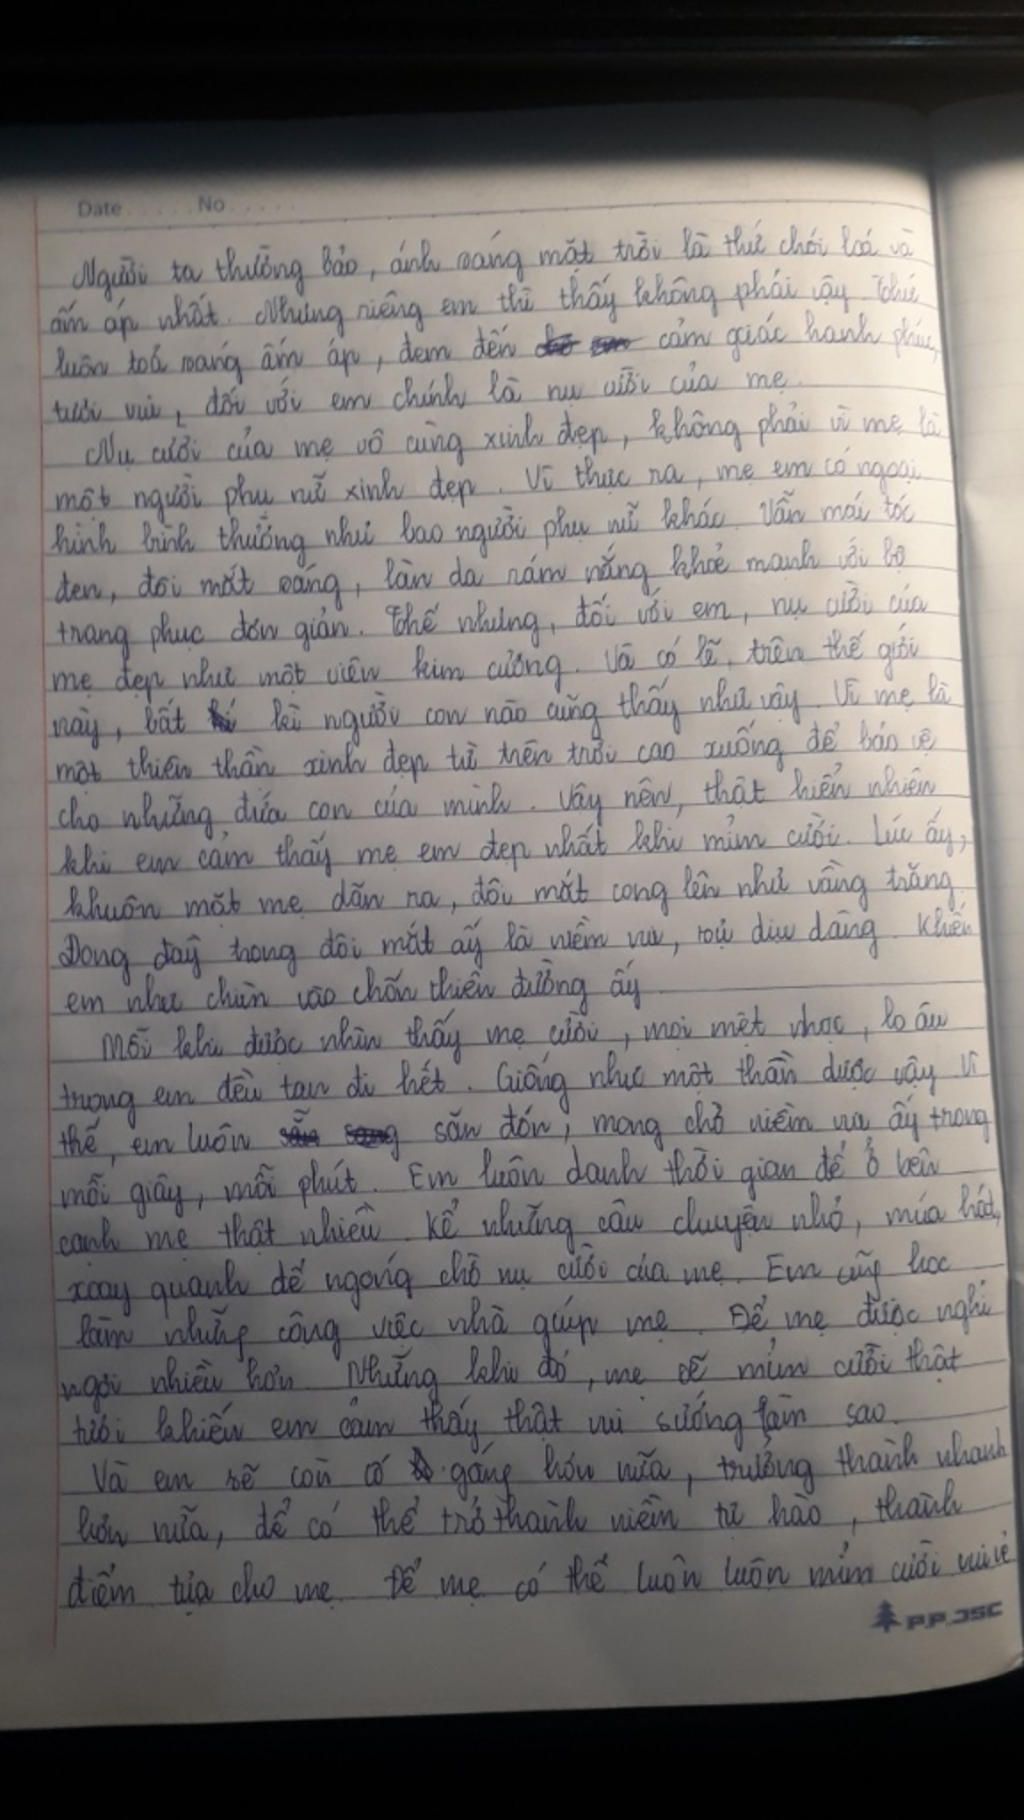 Date ..... No .....
Người ta thường bảo, ánh sáng mặt trời là thứ chói loá và
ấm áp nhất. Nhưng riêng em thì thấy không phải vậy. Thứ
luôn toả sáng ấm áp, đem đến cảm giác hạnh phúc,
tươi vui, đối với em chính là nụ cười của mẹ.
Nụ cười của mẹ vô cùng xinh đẹp, không phải vì mẹ là
một người phụ nữ xinh đẹp. Vì thực ra, mẹ em có ngoại
hình bình thường như bao người phụ nữ khác. Vẫn mái tóc
đen, đôi mắt sáng, làn da rám nắng khoẻ mạnh với bộ
trang phục đơn giản. Thế nhưng, đối với em, nụ cười của
mẹ đẹp như một viên kim cương. Và có lẽ, trên thế giới
này, bất kì người con nào cũng thấy như vậy. Vì mẹ là
một thiên thần xinh đẹp từ trên trời cao xuống để bảo vệ
cho những đứa con của mình. Vậy nên, thật hiển nhiên
khi em cảm thấy mẹ em đẹp nhất khi mỉm cười. Lúc ấy,
khuôn mặt mẹ dãn ra, đôi mắt cong lên như vầng trăng.
Đong đầy trong đôi mắt ấy là niềm vui, sự dịu dàng. Khiến
em như chìm vào chốn thiên đường ấy
Mỗi khi được nhìn thấy mẹ cười, mọi mệt nhọc, lo âu
trong em đều tan đi hết. Giống như một thần dược vậy. Vì
thế, em luôn săn đón, mong chờ niềm vui ấy trong
mỗi giây, mỗi phút. Em luôn dành thời gian để ở bên
cạnh mẹ thật nhiều. Kể những câu chuyện nhỏ, múa hát,
xoay quanh để ngóng chờ nụ cười của mẹ. Em cũng học
làm những công việc nhà giúp mẹ. Để mẹ được nghỉ
ngơi nhiều hơn. Những khi đó, mẹ sẽ mỉm cười thật
tươi khiến em cảm thấy thật vui sướng làm sao.
Và em sẽ còn cố gắng hơn nữa, trưởng thành nhanh
hơn nữa, để có thể trở thành niềm tự hào, thành
điểm tựa cho mẹ. Để mẹ có thể luôn luôn mỉm cười vui vẻ
P.P.JSC